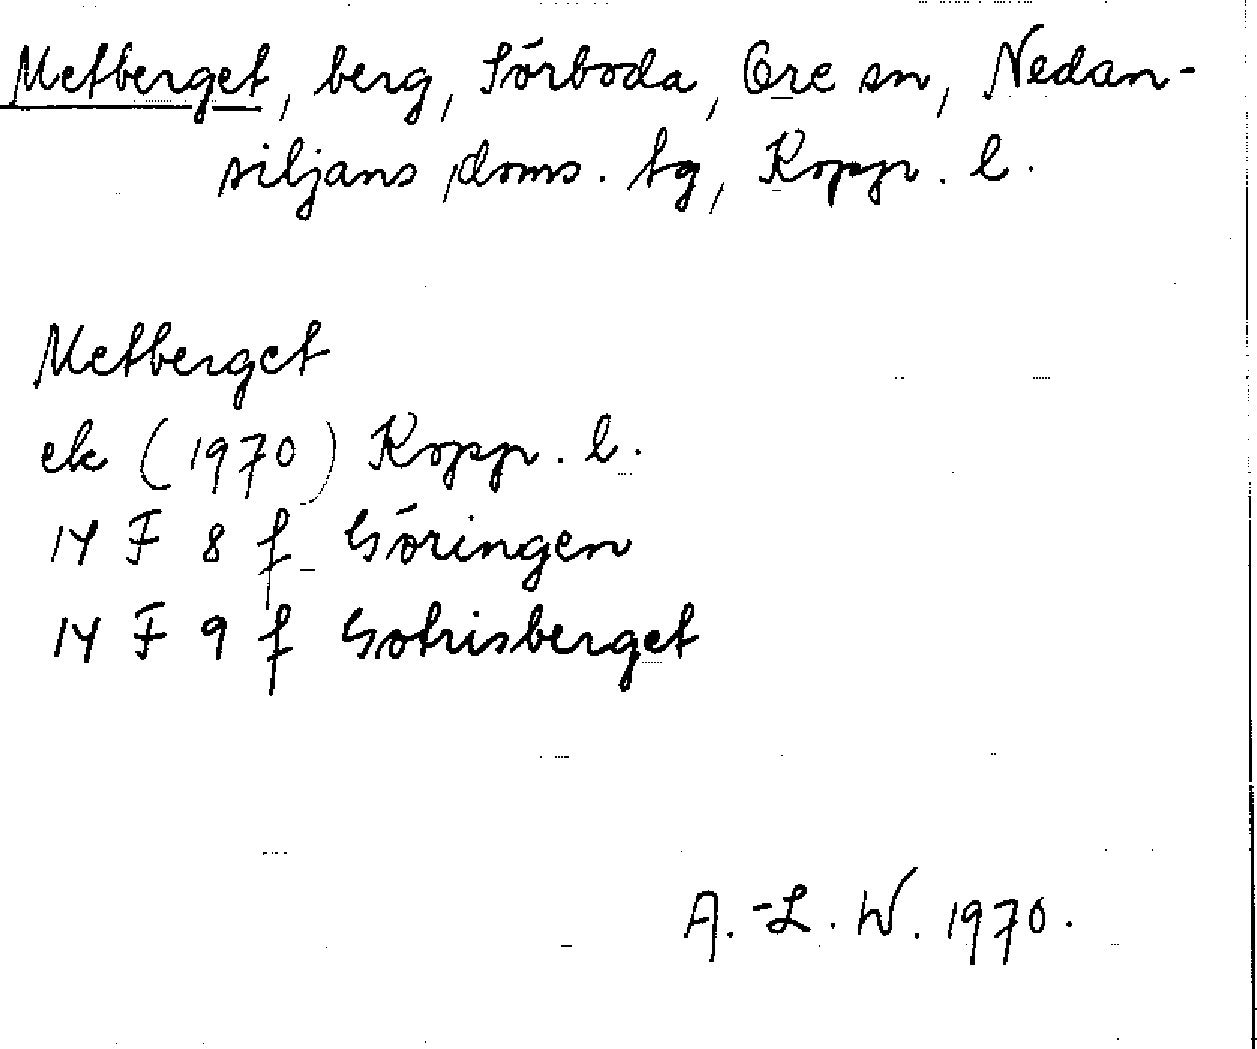 Metberget, berg, Sörboda, Ore sn, Nedan-
siljans doms. tg, Kopp. l.
Metberget
ek (1970) Kopp. l.
14 F 8 f Göringen
14 F 9 f Gotrisberget
A.-L. W. 1970.